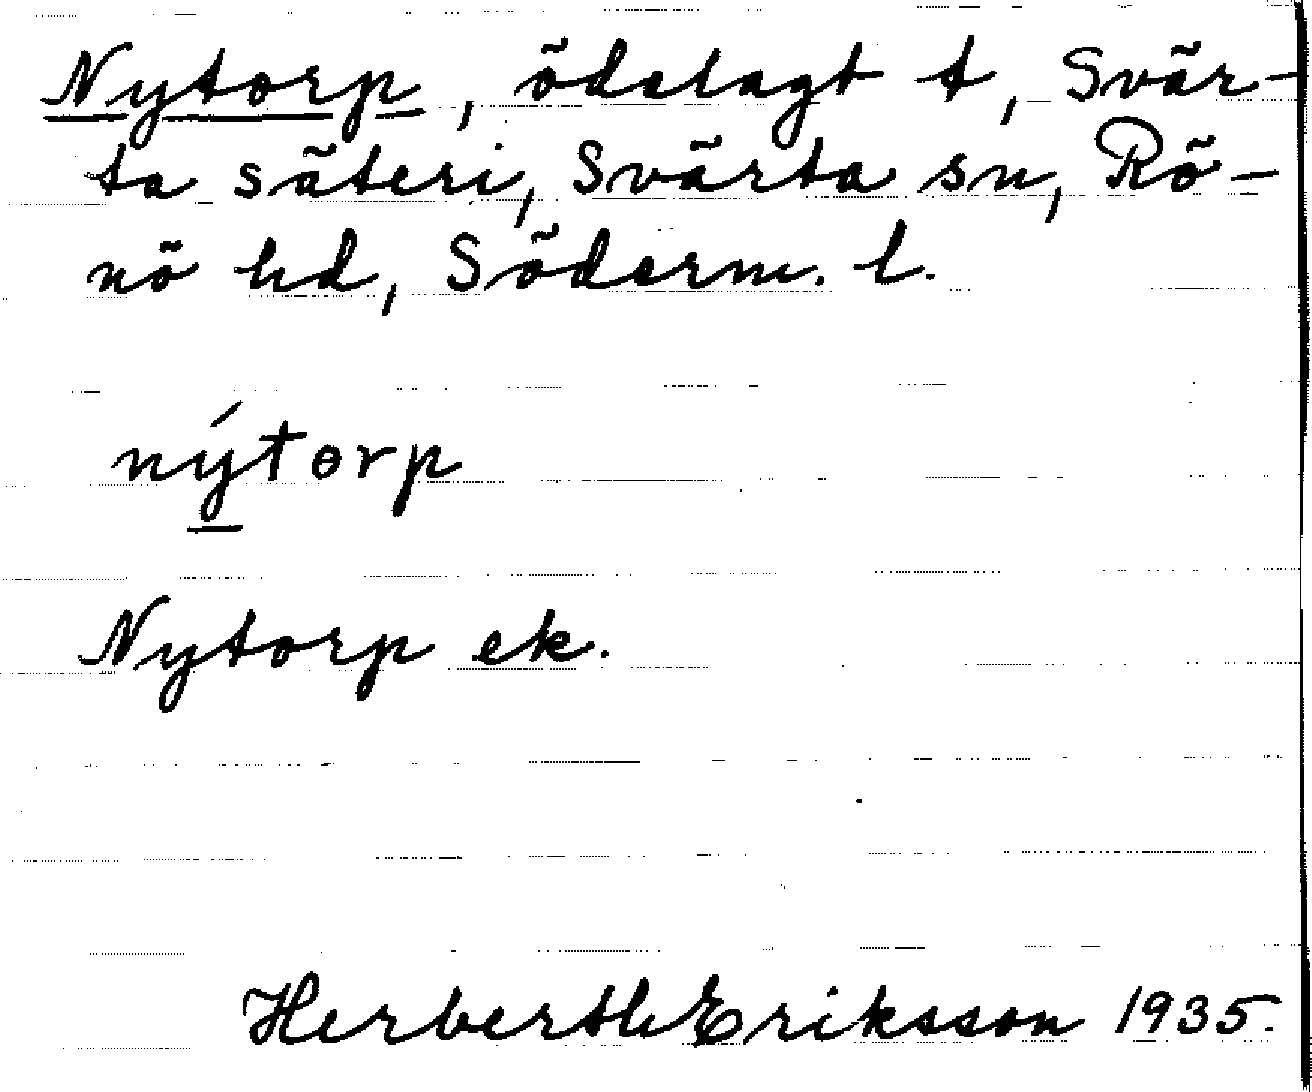 Nytorp, ödelagt t, Svär-
ta säteri, Svärta sn, Rö-
nö hd, Söderm. l.
nýtorp
Nytorp ek.
Herberth Eriksson 1935.